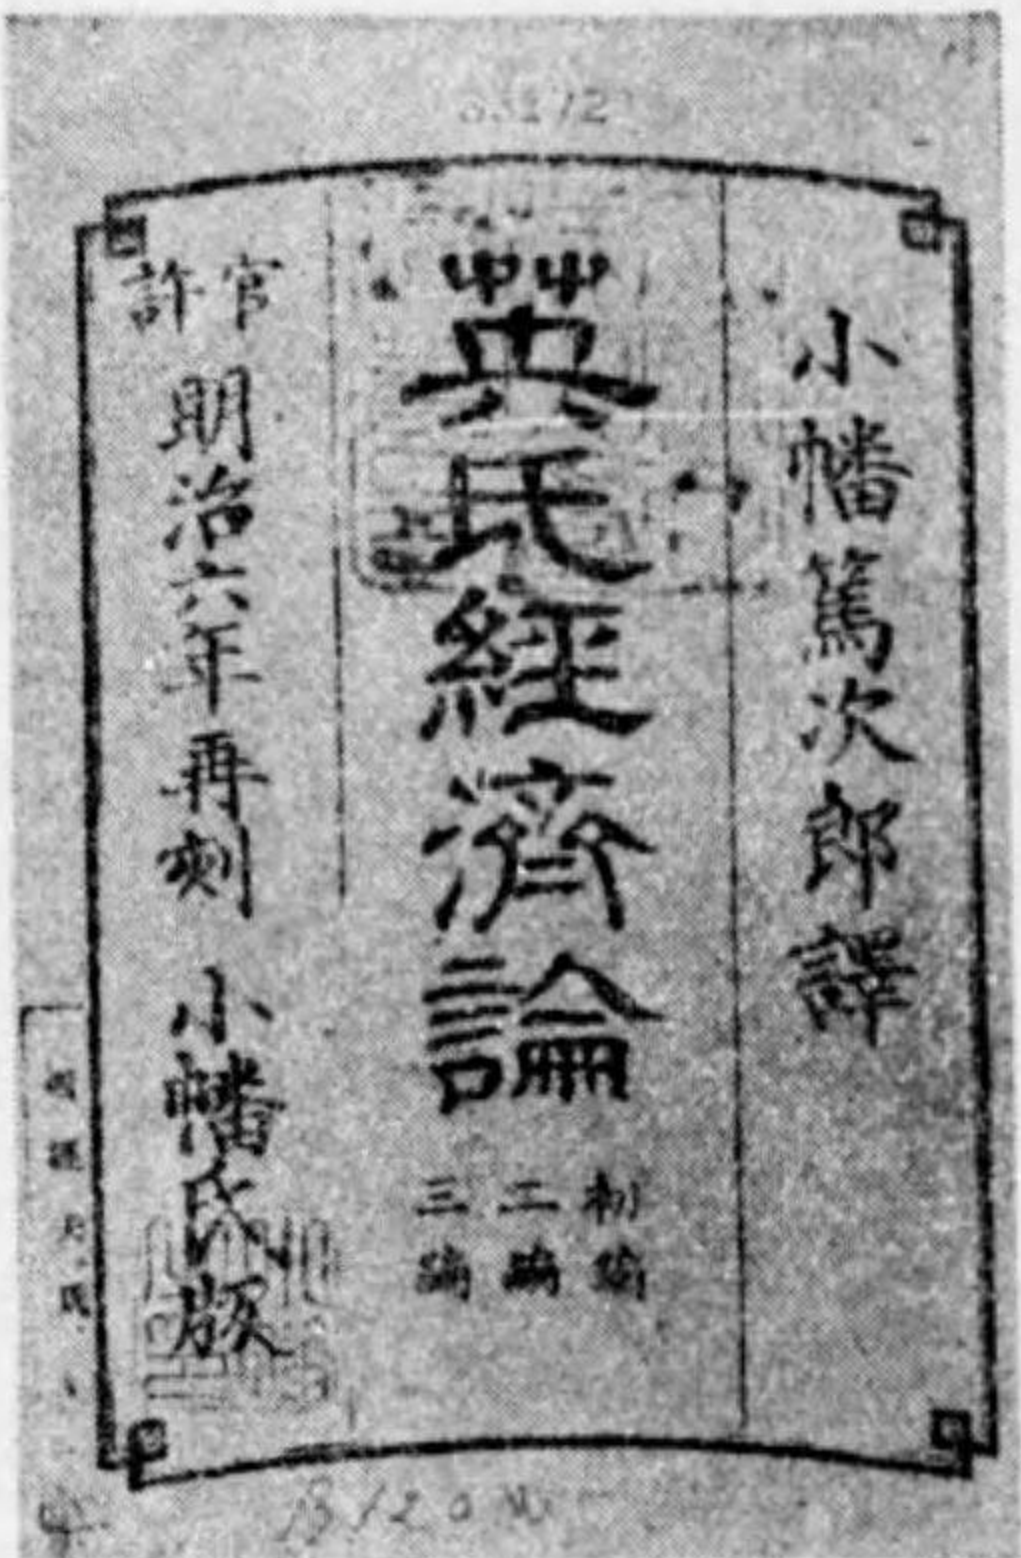 小幡篤次郎譯
英氏經濟論
初編
二編
三編
官許
明治六年再刻 小幡氏版